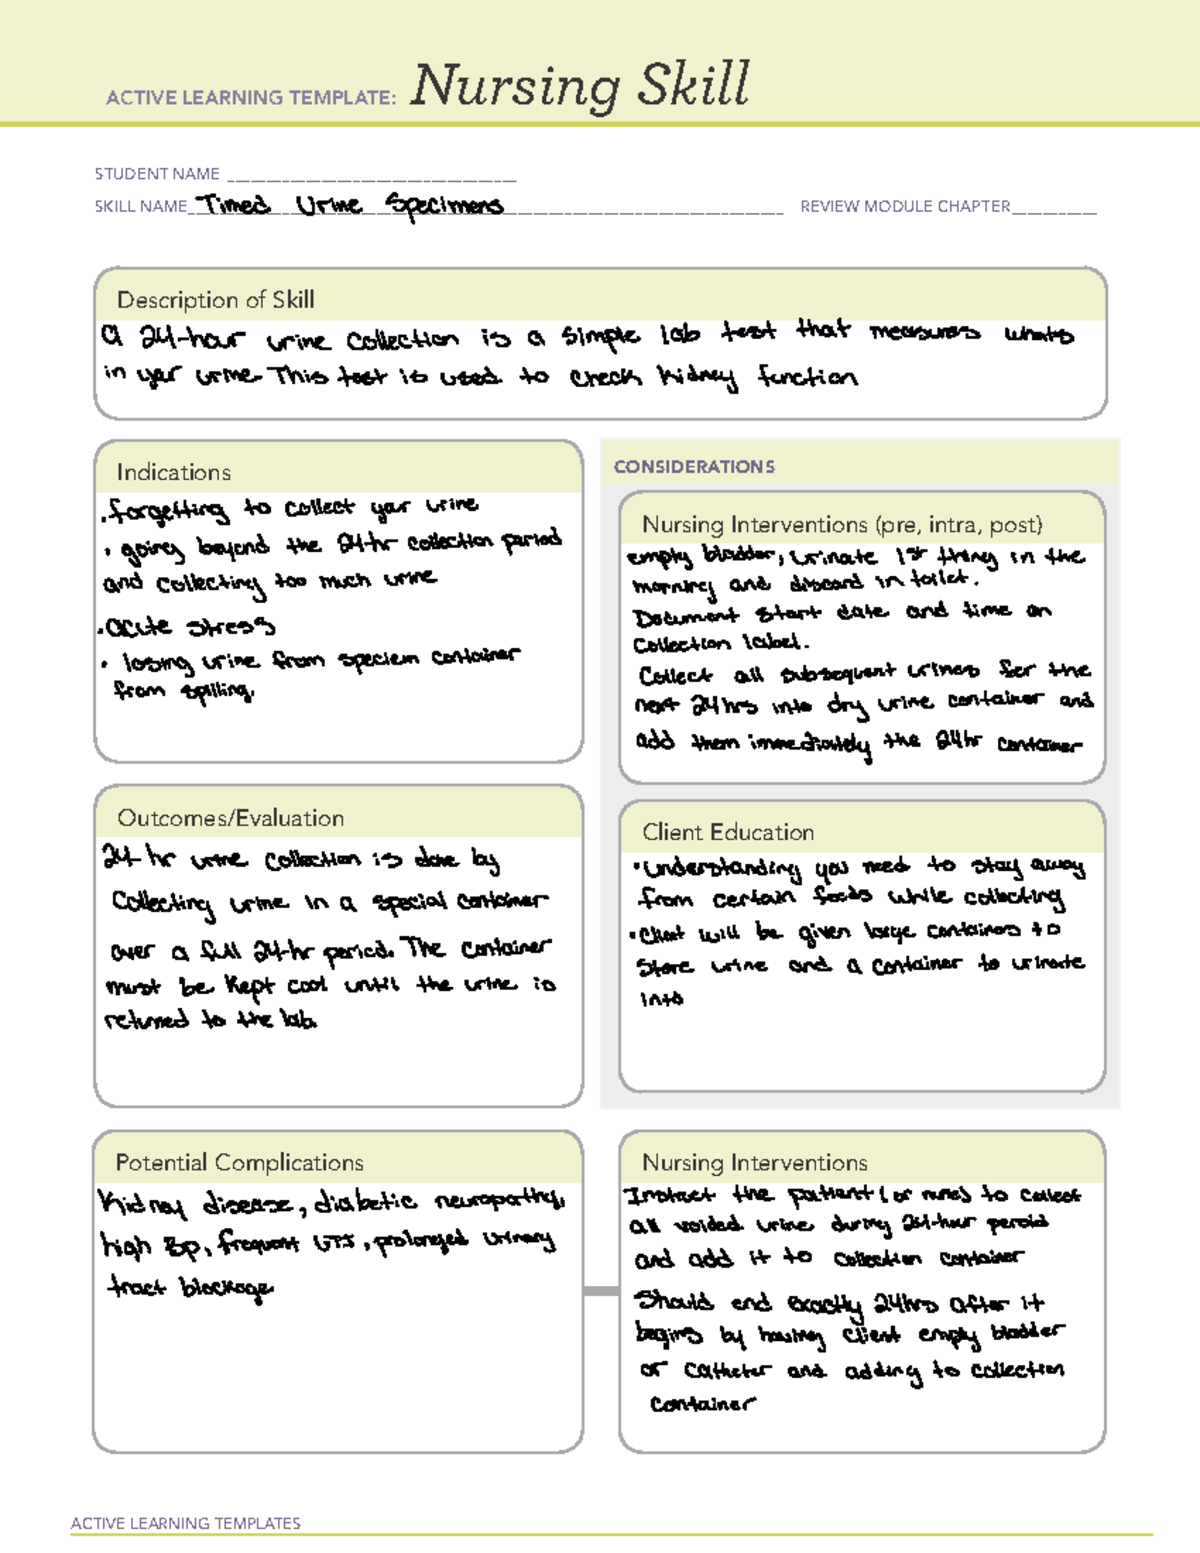 ACTIVE LEARNING TEMPLATE: Nursing Skill
STUDENT NAME
SKILL NAME Timed Urine Specimens REVIEW MODULE CHAPTER
Description of Skill
A 24-hour urine collection is a simple lab test that measures whats
in your urine. This test is used to check kidney function
Indications
• forgetting to collect your urine
• going beyond the 24-hr collection period
and collecting too much urine
• acute stress
• losing urine from speciem container
from spilling.
CONSIDERATIONS
Nursing Interventions (pre, intra, post)
empty bladder, urinate 1st thing in the
morning and discard in toilet.
Document start date and time on
collection label.
Collect all subsequent urines for the
next 24hrs into dry urine container and
add them immediately the 24hr container
Outcomes/Evaluation
24-hr urine collection is done by
Collecting urine in a special container
over a full 24-hr period. The container
must be kept cool until the urine is
returned to the lab.
Client Education
• Understanding you need to stay away
from certain foods while collecting
• Client will be given large containers to
store urine and a container to urinate
into
Potential Complications
Kidney disease, diabetic neuropathy,
high Bp, frequent UTIs, prolonged urinary
tract blockage
Nursing Interventions
Instruct the patient (or nurse) to collect
all voided urine during 24-hour peroid
and add it to collection container
Should end exactly 24hrs after it
begins by having client empty bladder
or catheter and adding to collection
container
ACTIVE LEARNING TEMPLATES